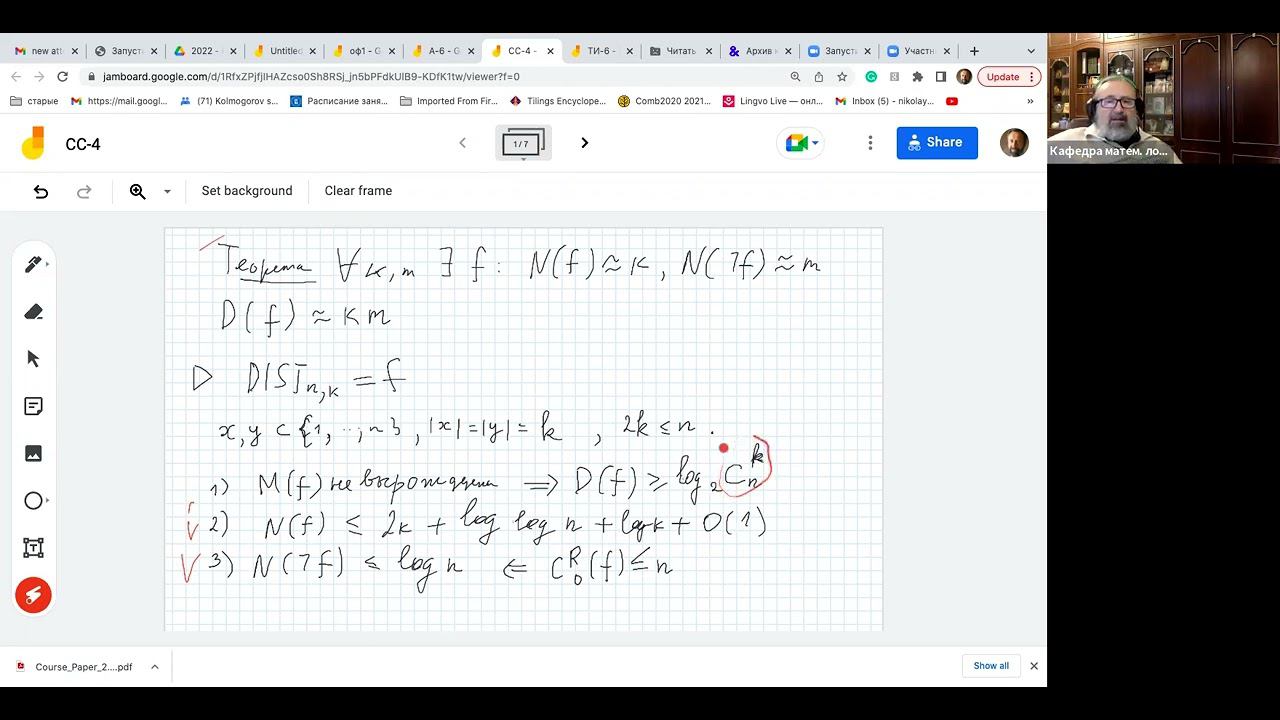 new att
Запуст
2022 -
Untitled
оф1 - G
А-6 - G
СС-4 -
ТИ-6 -
Читать
Архив к
Запуст
Участн
jamboard.google.com/d/1RfxZPjfjlHAZcso0Sh8RSj_jn5bPFdkUlB9-KDfK1tw/viewer?f=0
Update
старые
https://mail.googl...
(71) Kolmogorov s...
Расписание заня...
Imported From Fir...
Tilings Encyclope...
Comb2020 2021...
Lingvo Live — онл...
Inbox (5) - nikolay...
»
Кафедра матем. ло...
СС-4
1/7
Share
Set background
Clear frame
Теорема ∀ k, m ∃ f: N(f) ≈ k, N(¬f) ≈ m
D(f) ≈ k m
▷ DISJ_{n,k} = f
x, y ⊂ {1, ..., n}, |x| = |y| = k, 2k ≤ n.
1) M(f) не вырождена ⟹ D(f) ≥ log₂ C_n^k
2) N(f) ≤ 2k + log log n + log k + O(1)
3) N(¬f) ≤ log n ⇐ C_0^R(f) ≤ n
Course_Paper_2....pdf
Show all